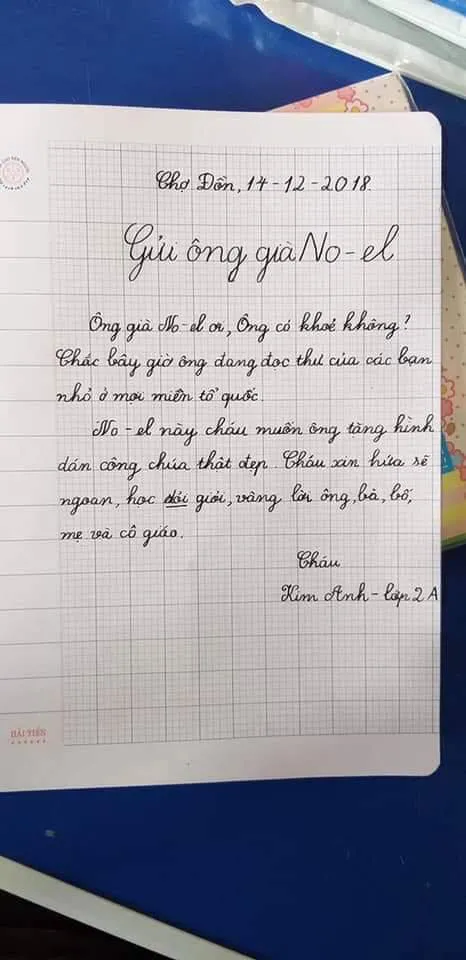 Chợ Đồn, 14-12-2018.
Gửi ông già No-el
Ông già No-el ơi, Ông có khoẻ không?
Chắc bây giờ ông đang đọc thư của các bạn
nhỏ ở mọi miền tổ quốc.
No-el này cháu muốn ông tặng hình
dán công chúa thật đẹp. Cháu xin hứa sẽ
ngoan, học giỏi, vâng lời ông, bà, bố,
mẹ và cô giáo.
Cháu
Kim Anh - lớp 2A
HẢI TIẾN